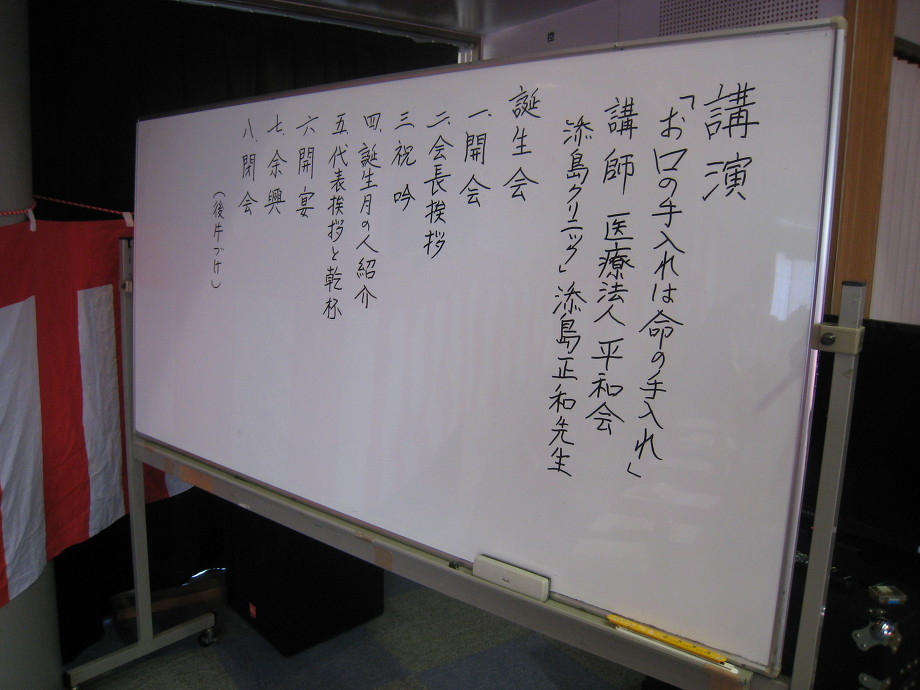 講演
「お口の手入れは命の手入れ」
講師 医療法人平和会
添島クリニック」添島正和先生
誕生会
一、開会
二、会長挨拶
三、祝吟
四、誕生月の人紹介
五、代表挨拶と乾杯
六、開宴
七、余興
八、閉会
(後片づけ)